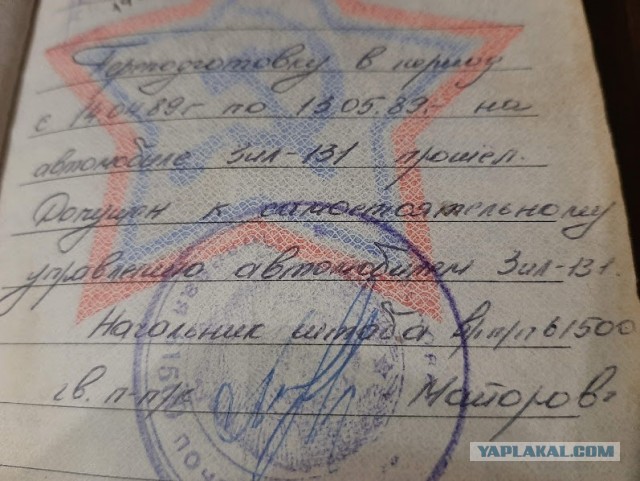 Переподготовку в период
с 14.04.89г по 13.05.89г. на
автомобиле Зил-131 прошел.
Допущен к самостоятельному
управлению автомобилем Зил-131.
Начальник штаба в/ч п/п 61500
гв. п-п/к Майоров
YAPLAKAL.COM